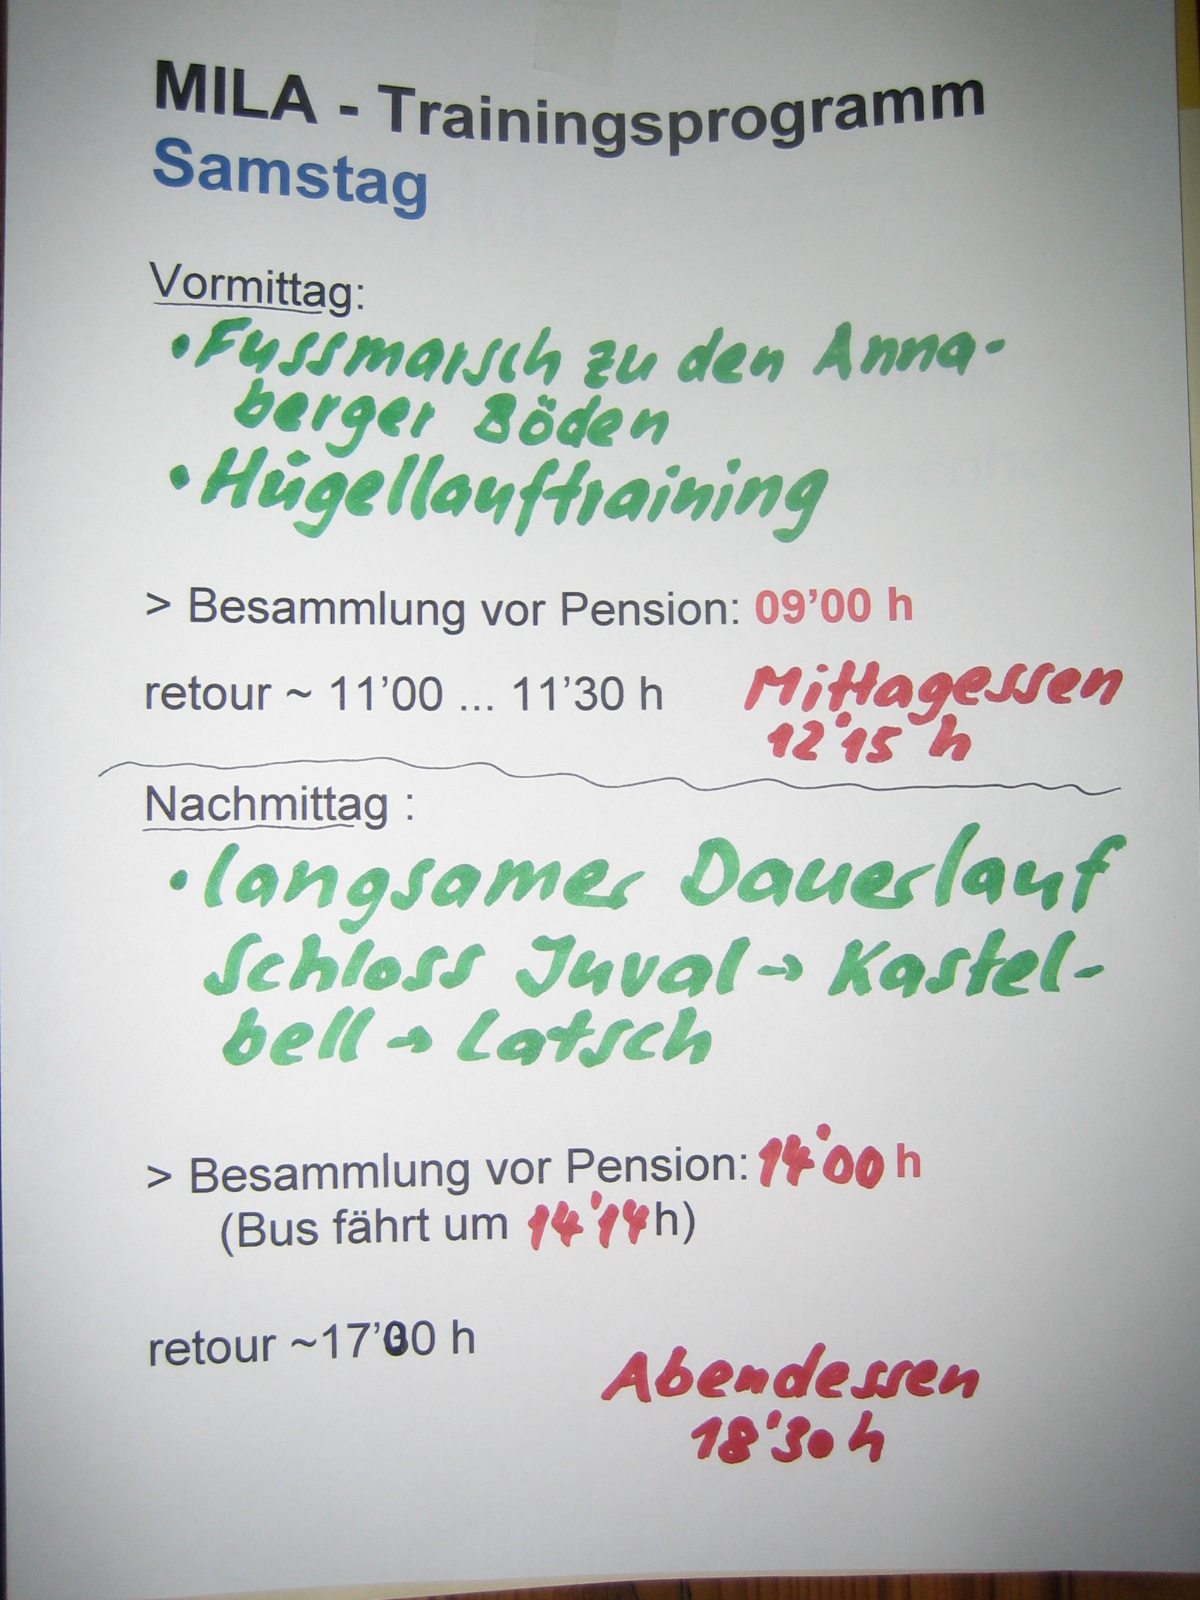 MILA - Trainingsprogramm
Samstag
Vormittag:
• Fussmarsch zu den Anna-
berger Böden
• Hügellauftraining
> Besammlung vor Pension: 09'00 h
retour ~ 11'00 ... 11'30 h
Mittagessen
12'15 h
Nachmittag :
• langsamer Dauerlauf
Schloss Juval → Kastel-
bell → Latsch
> Besammlung vor Pension: 14'00 h
(Bus fährt um 14'14 h)
retour ~17'00 h
Abendessen
18'30 h